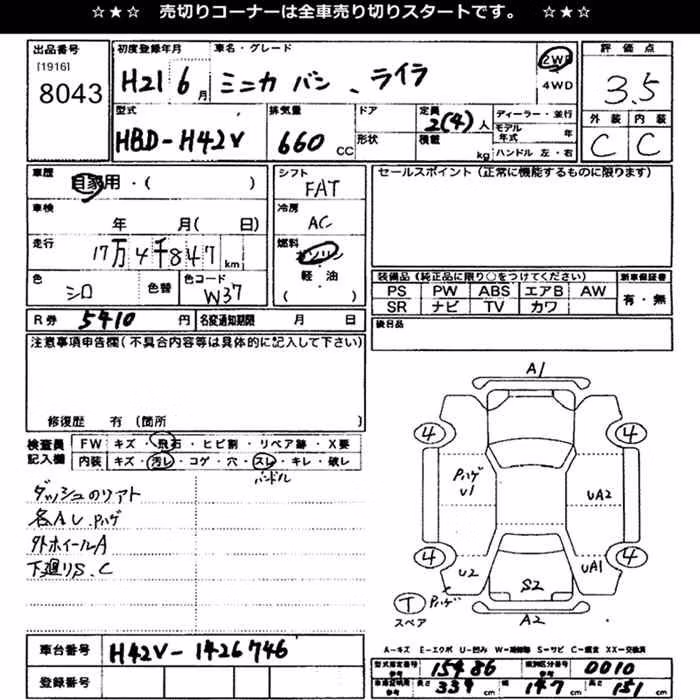 ☆★☆ 売切りコーナーは全車売り切りスタートです。 ☆★☆
出品番号
[1916]
8043
初度登録年月
H21 6月
車名・グレード
ミニカ バン 、ライラ
2WD
4WD
評価点
3.5
外装 内装
C C
型式
HBD-H42V
排気量
660 CC
ドア
形状
定員
2(4)人
積載
kg
ディーラー・並行
モデル年式 年
ハンドル 左・右
車歴
自家用・( )
車検
年 月( 日)
走行
17万4千847 km
色
シロ
色替
色コード
W37
シフト
FAT
冷房
AC
燃料
ガソリン
軽・油
( )
セールスポイント(正常に機能するものに限ります)
装備品(純正品に限り○をつけてください)
PS PW ABS エアB AW
SR ナビ TV カワ
新車保証書
有・無
後日品
R券 5410 円
名変通知期限 月 日
注意事項申告欄(不具合内容等は具体的に記入して下さい)
修復歴 有(箇所 )
検査員記入欄
FW キズ・飛石・ヒビ割・リペア跡・X要
内装 キズ・汚レ・コゲ・穴・スレ・キレ・破レ
ハンドル
ダッシュのリアト
各AU.Pハゲ
外ホイールA
下廻りS.C
A1
4
4
Pハゲ
U1
UA2
4
4
U2
UA1
S2
T
スペア
Pハゲ
A2
車台番号
H42V-1426746
登録番号
A-キズ E-エクボ U-凹み W-補修跡 S-サビ C-腐食 XX-交換済
型式指定番号 参考 15486
類別区分番号 参考 0010
長さ 339 cm 幅 147 cm 高さ 151 cm